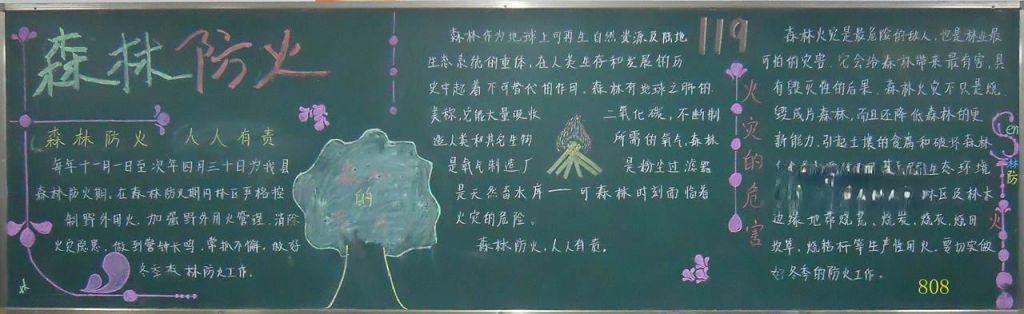 森林防火
森林防火 人人有责
每年十一月一日至次年四月三十日为我县
森林防火期,在森林防火期内林区严格控
制野外用火,加强野外用火管理,消除
火灾隐患,做到警钟长鸣,常抓不懈,做好
冬季森林防火工作。
的
森林作为地球上可再生自然资源及陆地
生态系统的重体,在人类生存和发展的历
史中起着不可替代的作用,森林有地球之肺的
美称,它能大量吸收二氧化碳,不断制
造人类和其它生物所需的氧气,森林
是氧气制造厂是粉尘过滤器
是天然蓄水库——可森林时刻面临着
火灾的危险。
森林防火,人人有责。
119
火灾的危害
森林火灾是最危险的敌人,也是林业最
可怕的灾害,它会给森林带来最有害,具
有毁灭性的后果,森林火灾不只是烧
毁成片森林,而且还降低森林的更
新能力,引起土壤的贫瘠和破坏森林
生态环境
林区及林木
边缘地带烧荒、烧炭、烧灰、烧田
坎草,烧秸秆等生产性用火,要切实做
好冬季的防火工作。
林
防
火
808